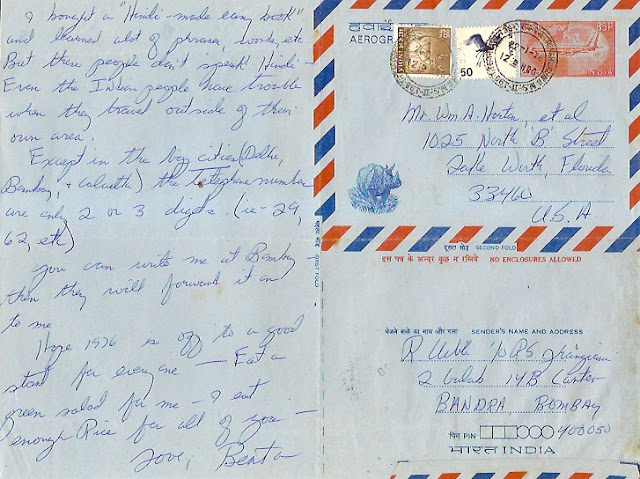 I bought a "Hindi-made easy book"
and learned alot of phrases, words, etc
But these people don't speak Hindi-
Even the Indian people have trouble
when they travel outside of their
own area.
Except in the big cities (Delhi,
Bombay, + Calcutta) the telephone number
are only 2 or 3 digits. (ie-29,
62, etc)
you can write me at Bombay -
then they will forward it on
to me
Hope 1976 is off to a good
start for everyone — Eat a
green salad for me - I eat
enough Rice for all of you —
Love, Benta
हवाई
AEROGR
50
85P
भारत
INDIA
Mr. Wm A. Horten, et al
1025 North 'B' Street
Lake Worth, Florida
33460
U.S.A
दूसरा मोड़ SECOND FOLD
FIRST FOLD
इस पत्र के अन्दर कुछ न रखिये NO ENCLOSURES ALLOWED
भेजने वाले का नाम और पता SENDER'S NAME AND ADDRESS
2 Gulab 14B Carter
BANDRA, BOMBAY
पिन PIN 400050
भारत INDIA